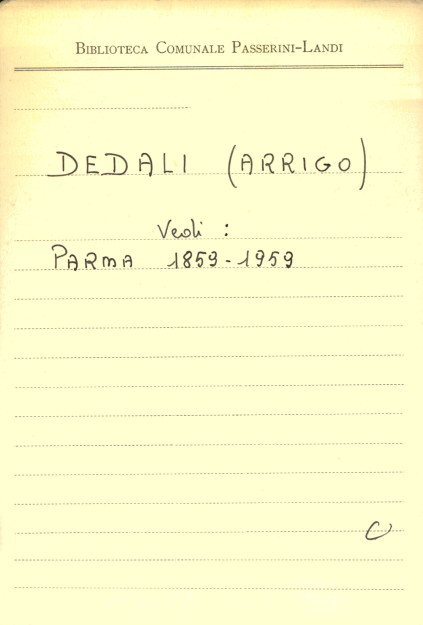 BIBLIOTECA COMUNALE PASSERINI-LANDI
DEDALI (ARRIGO)
Vedi :
PARMA 1859-1959
C